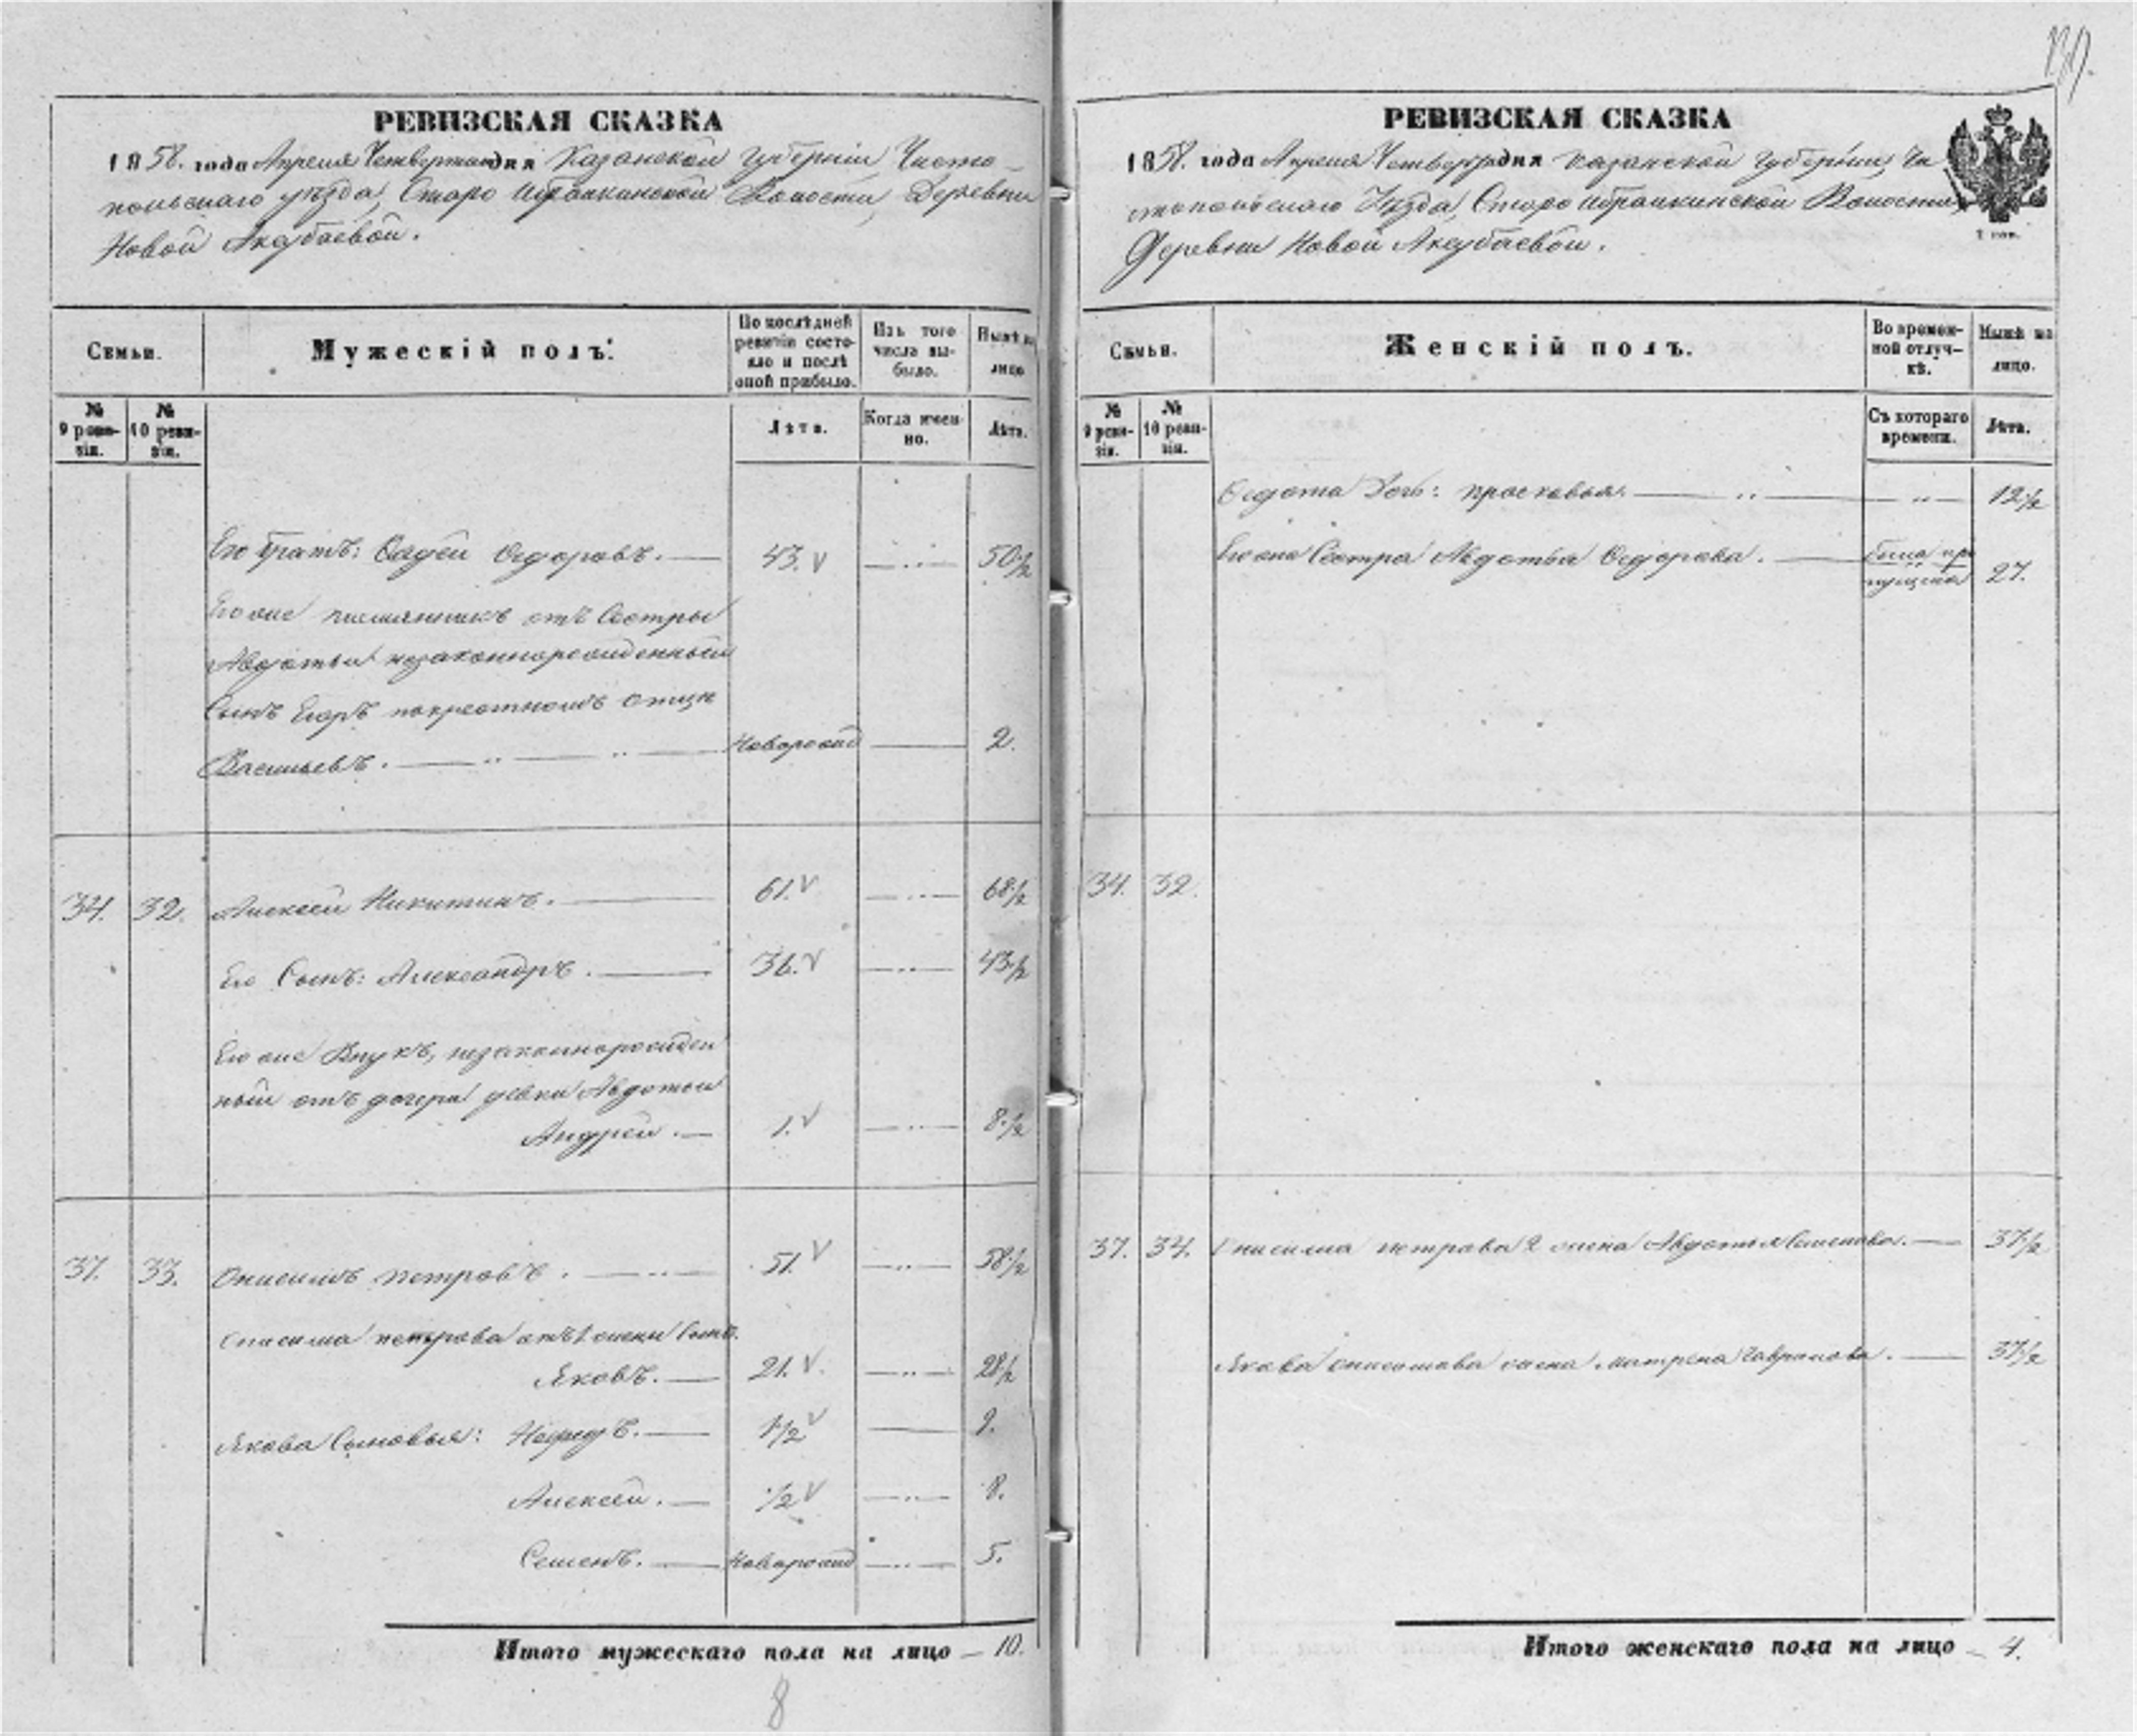 130.
РЕВИЗСКАЯ СКАЗКА
1858. года Апреля Четвертаго дня Казанской Губерніи Чисто-
польскаго уѣзда, Старо Ибрайкинской Волости, Деревни
Новой Аксубаевой.
Семьи.
Мужескій полъ.
По послѣдней ревизіи состояло и послѣ оной прибыло.
Изъ того числа выбыло.
Нынѣ на лицо
№ 9 ревизіи.
№ 10 ревизіи.
Лѣта.
Когда именно.
Лѣта.
Его братъ: Фадей Федоровъ. 43. 50 1/2
Его же племянникъ отъ Сестры
Авдотьи незаконнорожденный
Сынъ Егоръ по крестномъ отцѣ
Васильевъ. Новорожд 2.
34. 32. Алексей Никитинъ. 61. 68 1/2
Его Сынъ: Александръ. 36. 43 1/2
Его же Внукъ, незаконнорожден
ный отъ дочери девки Авдотьи
Андрей. 1. 8 1/2
37. 33. Онисимъ Петровъ. 51. 58 1/2
Онисима Петрова отъ 1 жены Сынъ.
Яковъ. 21. 28 1/2
Якова Сыновья: 1 1/2 9.
Алексей. 1/2 8.
Семенъ. Новорожд 5.
Итого мужескаго пола на лицо 10.
8
РЕВИЗСКАЯ СКАЗКА
1858. года Апреля Четвертаго дня Казанской Губерніи, Чи
стопольскаго Уѣзда, Старо Ибрайкинской Волости,
Деревни Новой Аксубаевой.
Семьи.
Женскій полъ.
Во временной отлучкѣ.
Нынѣ на лицо.
№ 9 ревизіи.
№ 10 ревизіи.
Съ котораго времени.
Лѣта.
Федота Дочь: Прасковья. 12 1/2
Его же Сестра Авдотья Федорова. была пропущена 27.
34. 32.
37. 34. Онисима Петрова 2 жена Авдотья Семенова. 37 1/2
Якова Онисимова жена Матрена Гаврилова. 37 1/2
Итого женскаго пола на лицо 4.